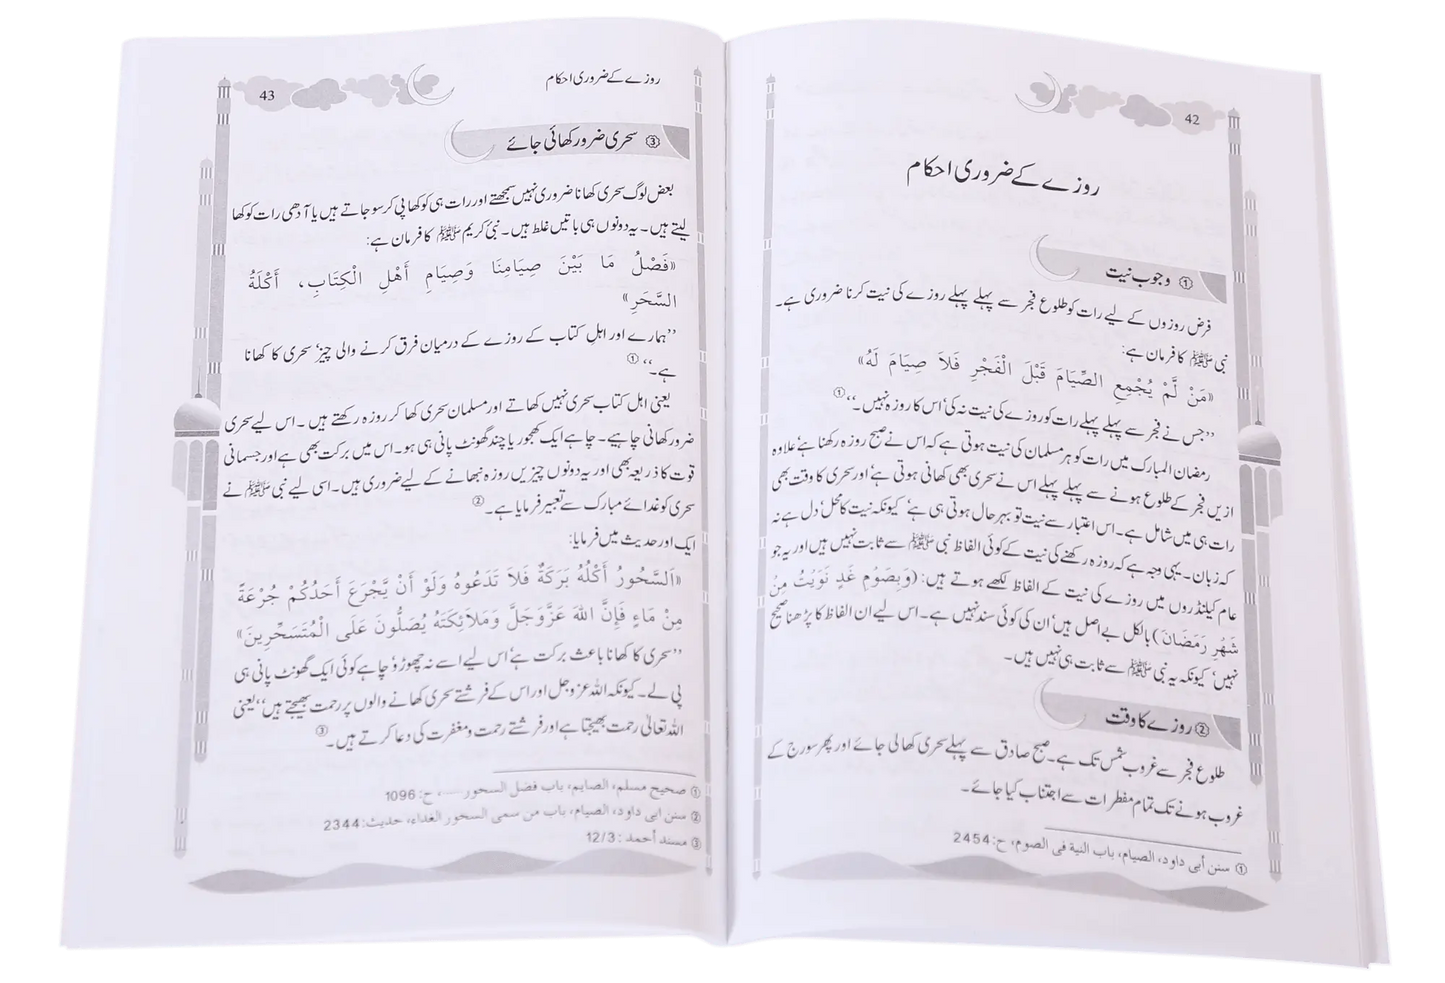 42
روزے کے ضروری احکام
① وجوب نیت
فرض روزوں کے لیے رات کو طلوع فجر سے پہلے پہلے روزے کی نیت کرنا ضروری ہے۔
نبی ﷺ کا فرمان ہے:
«مَنْ لَمْ يُجْمِعِ الصِّيَامَ قَبْلَ الْفَجْرِ فَلاَ صِيَامَ لَهُ»
’’جس نے فجر سے پہلے پہلے رات کو روزے کی نیت نہ کی‘ اس کا روزہ نہیں۔‘‘①
رمضان المبارک میں رات کو ہر مسلمان کی نیت ہوتی ہے کہ اس نے صبح روزہ رکھنا ہے‘ علاوہ
ازیں فجر کے طلوع ہونے سے پہلے پہلے اس نے سحری بھی کھانی ہوتی ہے‘ اور سحری کا وقت بھی
رات ہی میں شامل ہے۔ اس اعتبار سے نیت تو بہرحال ہوتی ہی ہے‘ کیونکہ نیت کا محل‘ دل ہے نہ
کہ زبان۔ یہی وجہ ہے کہ روزہ رکھنے کی نیت کے کوئی الفاظ نبی ﷺ سے ثابت نہیں ہیں اور یہ جو
عام کیلنڈروں میں روزے کی نیت کے الفاظ لکھے ہوتے ہیں: (وَبِصَوْمِ غَدٍ نَوَيْتُ مِنْ
شَهْرِ رَمَضَانَ) بالکل بے اصل ہیں‘ ان کی کوئی سند نہیں ہے۔ اس لیے ان الفاظ کا پڑھنا صحیح
نہیں‘ کیونکہ یہ نبی ﷺ سے ثابت ہی نہیں ہیں۔
② روزے کا وقت
طلوع فجر سے غروب شمس تک ہے۔ صبح صادق سے پہلے سحری کھا لی جائے اور پھر سورج کے
غروب ہونے تک تمام مفطرات سے اجتناب کیا جائے۔
① سنن أبی داود، الصیام، باب النیة فی الصوم، ح:2454
روزے کے ضروری احکام
43
③ سحری ضرور کھائی جائے
بعض لوگ سحری کھانا ضروری نہیں سمجھتے اور رات ہی کو کھا پی کر سو جاتے ہیں یا آدھی رات کو کھا
لیتے ہیں۔ یہ دونوں ہی باتیں غلط ہیں۔ نبئ کریم ﷺ کا فرمان ہے:
«فَصْلُ مَا بَيْنَ صِيَامِنَا وَصِيَامِ أَهْلِ الْكِتَابِ، أَكْلَةُ
السَّحَرِ»
’’ہمارے اور اہلِ کتاب کے روزے کے درمیان فرق کرنے والی چیز‘ سحری کا کھانا
ہے۔‘‘①
یعنی اہل کتاب سحری نہیں کھاتے اور مسلمان سحری کھا کر روزہ رکھتے ہیں۔ اس لیے سحری
ضرور کھانی چاہیے۔ چاہے ایک کھجور یا چند گھونٹ پانی ہی ہو۔ اس میں برکت بھی ہے اور جسمانی
قوت کا ذریعہ بھی اور یہ دونوں چیزیں روزہ نبھانے کے لیے ضروری ہیں۔ اسی لیے نبی ﷺ نے
سحری کو غدائے مبارک سے تعبیر فرمایا ہے۔②
ایک اور حدیث میں فرمایا:
«اَلسَّحُورُ أَكْلُهُ بَرَكَةٌ فَلاَ تَدَعُوهُ وَلَوْ أَنْ يَّجْرَعَ أَحَدُكُمْ جُرْعَةً
مِنْ مَاءٍ فَإِنَّ اللهَ عَزَّوَجَلَّ وَمَلاَئِكَتَهُ يُصَلُّونَ عَلَى الْمُتَسَحِّرِينَ»
’’سحری کا کھانا باعث برکت ہے‘ اس لیے اسے نہ چھوڑو‘ چاہے کوئی ایک گھونٹ پانی ہی
پی لے۔ کیونکہ اللہ عزوجل اور اس کے فرشتے سحری کھانے والوں پر رحمت بھیجتے ہیں‘‘ یعنی
اللہ تعالیٰ رحمت بھیجتا ہے اور فرشتے رحمت و مغفرت کی دعا کرتے ہیں۔③
① صحیح مسلم، الصیام، باب فضل السحور ....، ح: 1096
② سنن ابی داود، الصیام، باب من سمی السحور الغداء، حدیث: 2344
③ مسند أحمد : 12/3